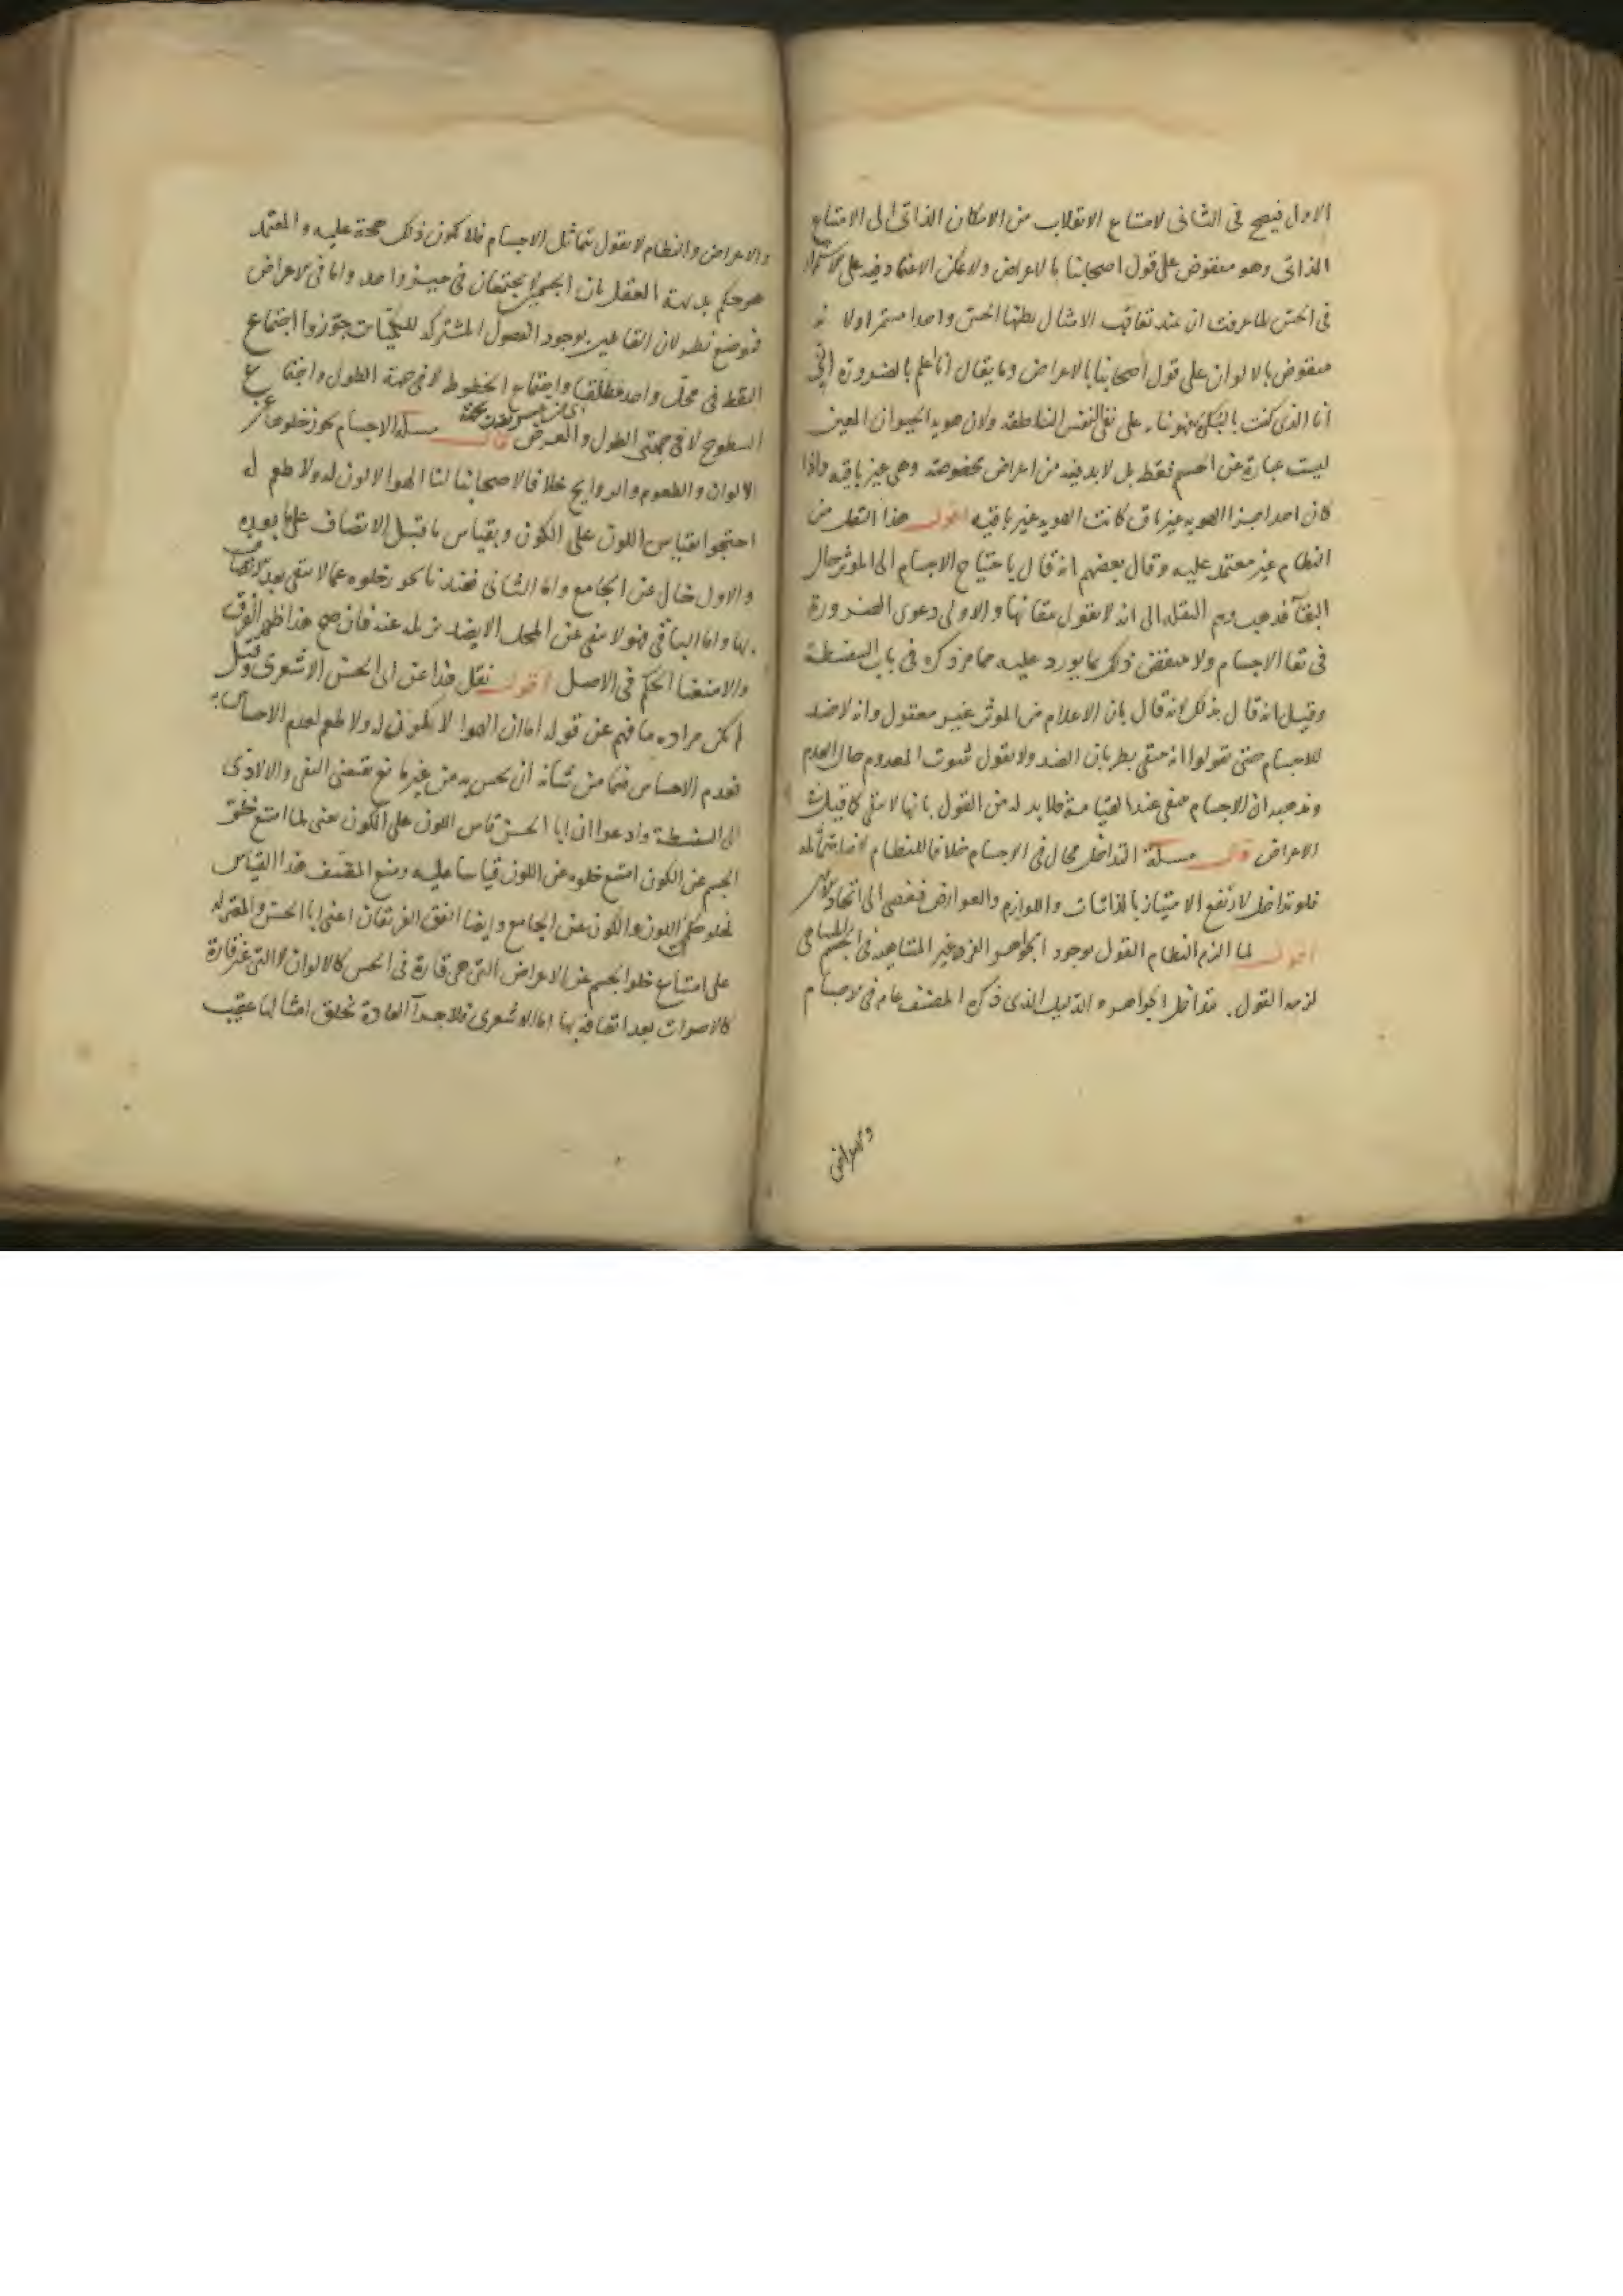 الاول فيصح فى الثانى لامتناع الانقلاب من الامكان الذاتى الى الامتناع
الذاتى وهو منقوض على قول اصحابنا بالاعراض ولا يمكن الاعتماد فيه على الاستمرار
فى الحس لما عرفت ان عند تعاقب الامثال يظنها الحس واحدا مستمرا ولانه
منقوض بالالوان على قول اصحابنا بالاعراض وما يقال انا اعلم بالضرورة انى
انا الذى كنت بالبكرة فهو بناء على نفى النفس الناطقة ولان هوية الحيوان المعين
ليست عبارة عن الجسم فقط بل لا بد فيه من اعراض مخصوصة وهى غير باقية واذا
كان احد اجزا الهوية غير باق كانت الهوية غير باقية اقول هذا النقل من
النظام غير معتمد عليه وقال بعضهم انه قال باحتياج الاجسام الى الموثر حال
البقآ فذهب وهم النقلة الى انه لا يقول ببقائها والاولى دعوى الضرورة
فى بقا الاجسام ولا ينقض ذلك بما يورد عليه مما مر ذكره فى باب السفسطة
وقيل انه قال بذلك لانه قال بان الاعلام من الموثر غير معقول وانه لا ضد
للاجسام حتى تقولوا انه ينتفى بطريان الضد ولا يقول بثبوت المعدوم حال العدم
ومذهبه ان الاجسام تنتفى عند القيامة فلا بد له من القول بانها لا تبقى كما قيل فى
الاعراض قال مسئلة التداخل محال فى الاجسام خلافا للنظام لانها متماثلة
فلو تداخل لارتفع الامتياز بالذاتيات واللوازم والعوارض فيفضى الى اتحاد الاثنين
اقول لما الزم النظام القول بوجود الجواهر الغير المتناهية فى الجسم المتناهى
لزمه القول بتداخل الجواهر والدليل الذى ذكره المصنف عام فى الاجسام
والاعراض
والاعراض والنظام لا يقول بتماثل الاجسام فلا يكون ذلك حجة عليه والمعتمد
هو حكم بديهة العقل بان الجسمين لا يجتمعان فى حيز واحد واما فى الاعراض
فموضع نظر لان القائلين بوجود الفصول المشتركة للكميات جوزوا اجتماع
النقط فى محل واحد مطلقا واجتماع الخطوط لا فى جهة الطول واجتماع
السطوح لا فى جهتى الطول والعرض قال مسئلة الاجسام يجوز خلوها عن
الالوان والطعوم والروايح خلافا لاصحابنا لنا الهوا لا لون له ولا طعم له
احتجوا بقياس اللون على الكون وبقياس ما قبل الاتصاف على ما بعده
والاول خال عن الجامع واما الثانى فعندنا يجوز خلوه عما لا يبقى بعد الاتصاف
بها واما الباقى فهو لا ينتفى عن المحل الا بضد يزيله عنه فان صح هذا ظهر الفرق
والا منعنا الحكم فى الاصل اقول نقل هذا عن ابى الحسن الاشعرى وقيل
لم يكن مراده ما فهم عن قوله اما ان الهوا لا يكون له لون ولا طعم لعدم الاحساس به
فعدم الاحساس فيما من شانه ان يحس به من غير مانع يقتضى النفى والا لادى
الى السفسطة وادعوا ان ابا الحسن قاس اللون على الكون يعنى لما امتنع خلو
الجسم عن الكون امتنع خلوه عن اللون قياسا عليه ومنع المصنف هذا القياس
لخلو حكم اللون والكون عن الجامع وايضا اتفق الفريقان اعنى ابا الحسن والمعتزلة
على امتناع خلو الجسم عن الاعراض التى هى قارة فى الحس كالالوان لا التى غير قارة
كالاصوات بعد اتصافه بها اما الاشعرى فلاجرآ العادة بخلق امثالها عقيب